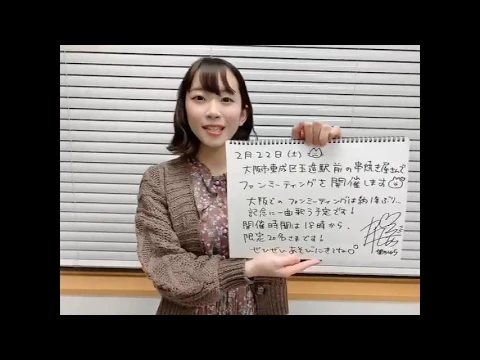 2月22日(土)
大阪市東成区玉造駅前の串焼き屋さんで
ファンミーティングを開催します
大阪でのファンミーティングは約1年ぶり…
記念に一曲歌う予定です!
開催時間は18時から、
限定20名さまです!
ぜひぜひあそびにきてね